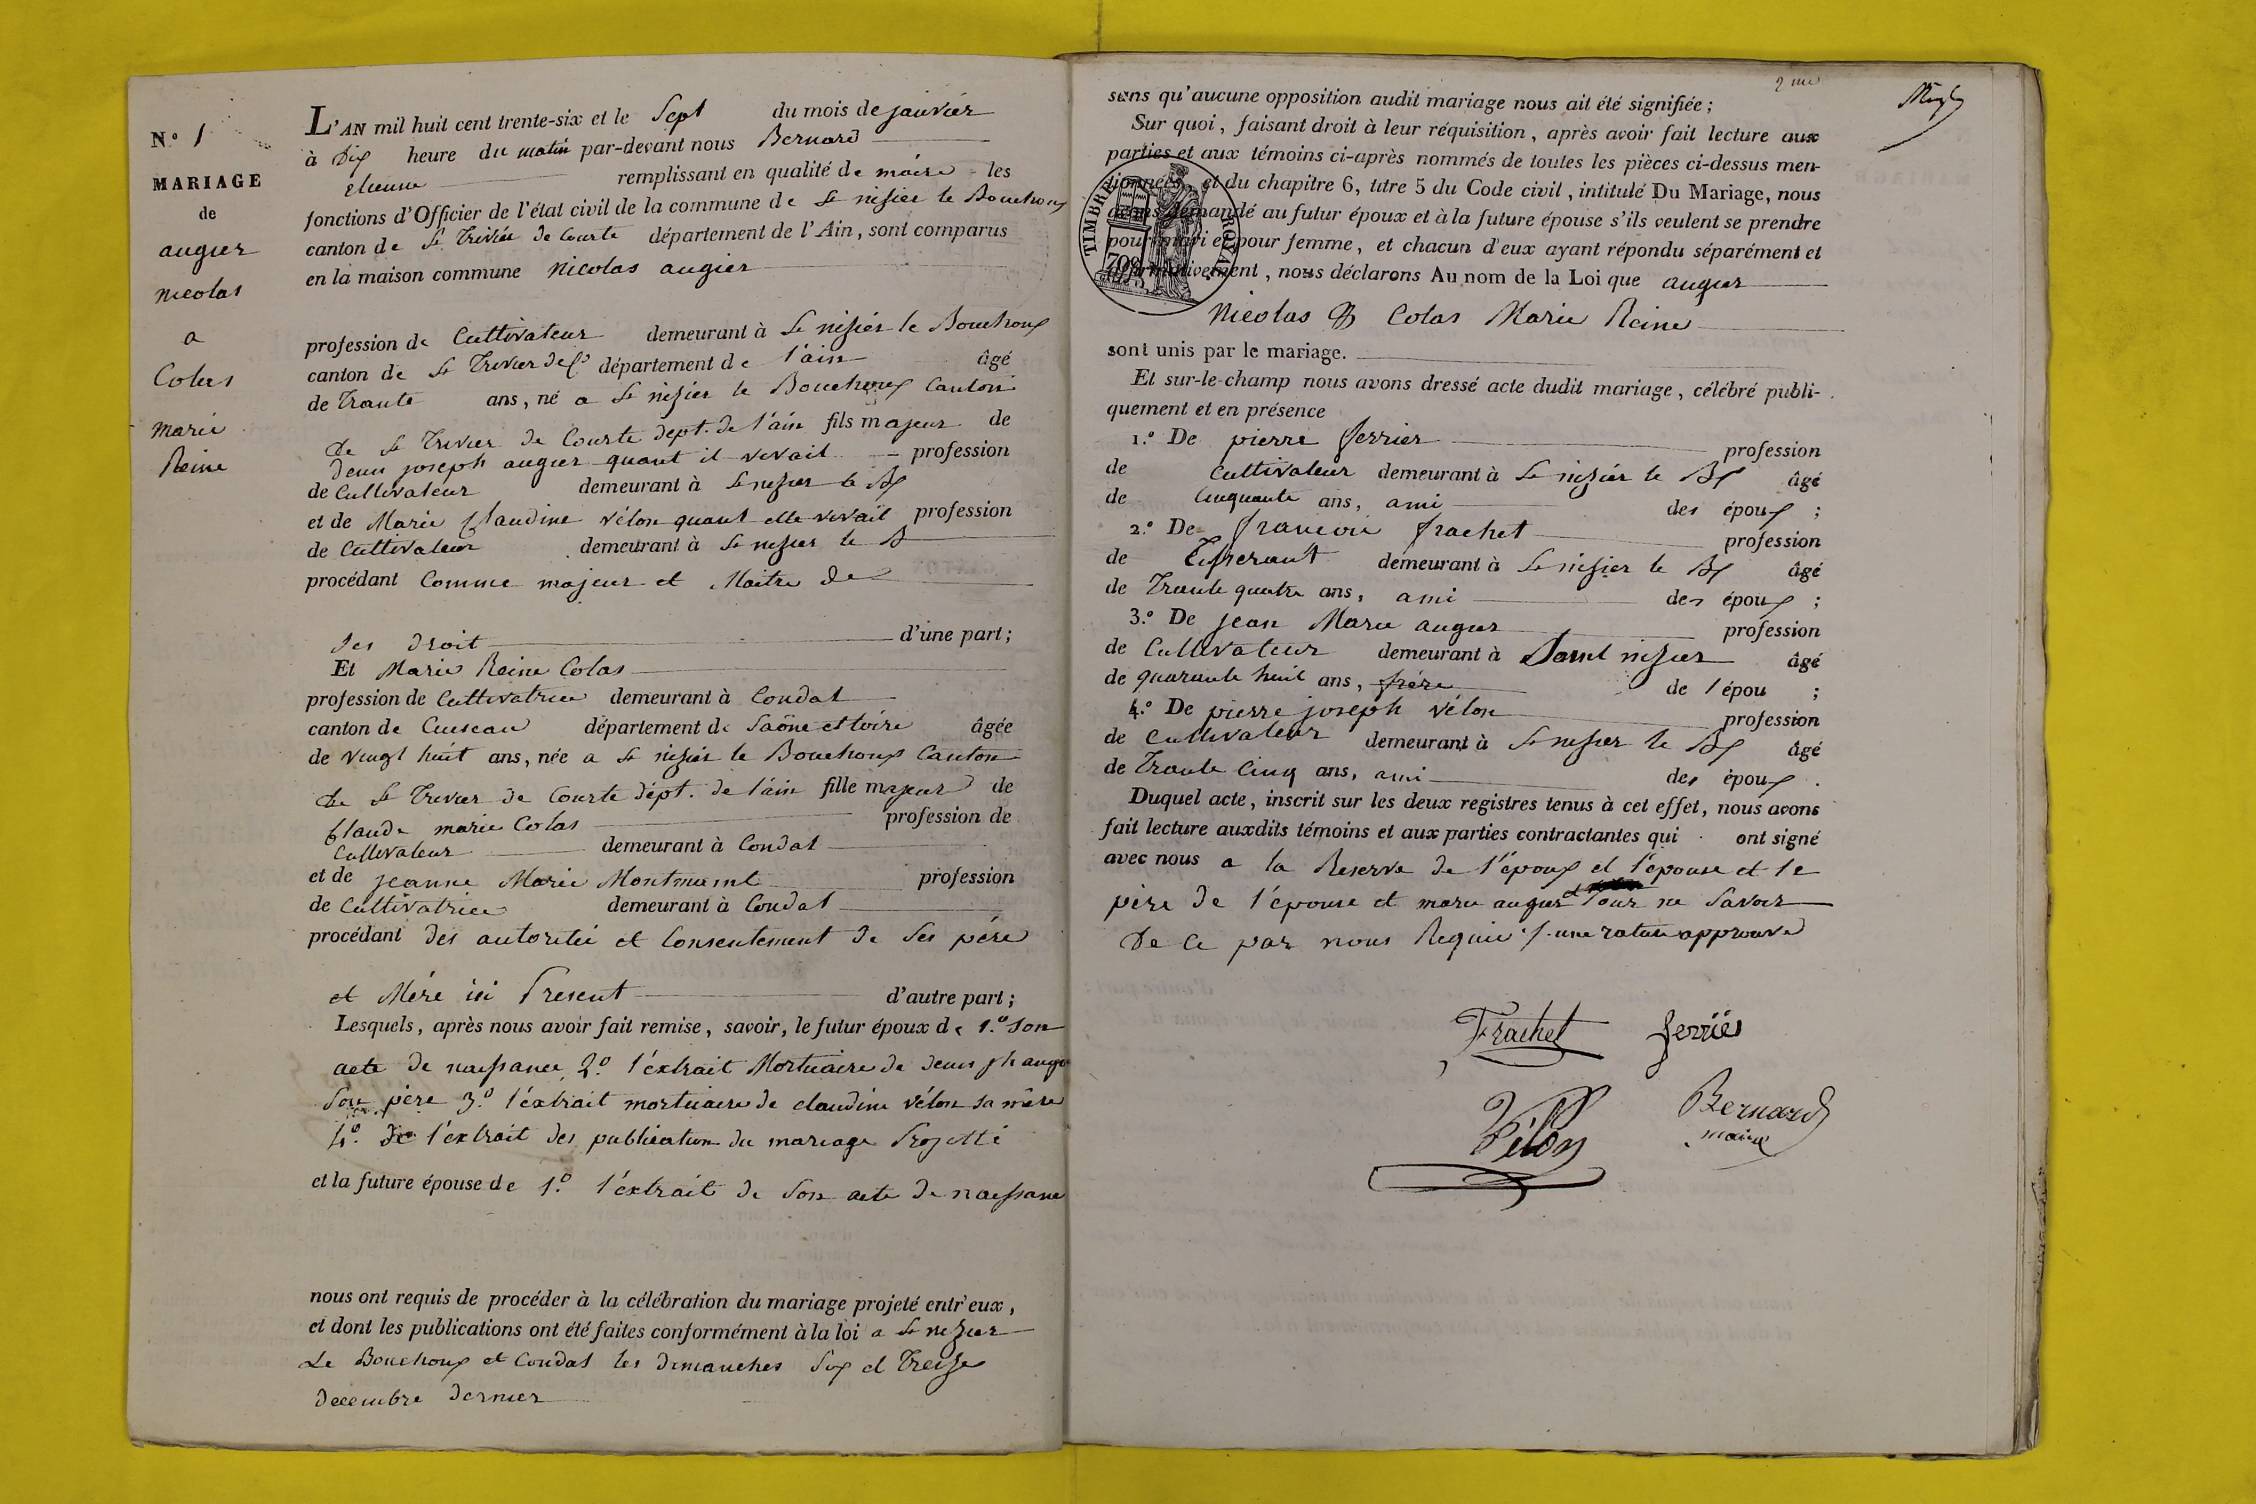 N.° 1
MARIAGE
de
augier
nicolas
a
Colas
marie
Reine
L'AN mil huit cent trente-six et le Sept du mois de janvier
à Dix heure du matin par-devant nous Bernard
etienne remplissant en qualité de maire les
fonctions d'Officier de l'état civil de la commune de St nisier le Bouchoux
canton de St Trivier de Courte département de l'Ain, sont comparus
en la maison commune Nicolas augier
profession de Cultivateur demeurant à St nisier le Bouchoux
canton de St Trivier de Cs département de l'ain âgé
de Trante ans, né a St nisier le Bouchoux Canton
de St Trivier de Courte dept. de l'ain fils majeur de
denis joseph augier quant il vivait profession
de Cultivateur demeurant à St nisier le Bx
et de Marie Claudine vélon quant elle vivait profession
de Cultivateur demeurant à St nisier le B
procédant Comme majeur et Maitre de
ses droit d'une part;
Et Marie Reine Colas
profession de Cultivatrice demeurant à Condat
canton de Cuiseau département de Saône et Loire âgée
de vingt huit ans, née a St nisier le Bouchoux Canton
de St Trivier de Courte dépt. de l'ain fille majeur de
Claude marie Colas profession de
Cultivateur demeurant à Condat
et de jeanne Marie profession
de Cultivatrice demeurant à Condat
procédant des autorité et Consentement de ses pére
et Mére ici Present d'autre part;
Lesquels, après nous avoir fait remise, savoir, le futur époux de 1.° son
acte de naissance 2.° l'éxtrait Mortuaire de denis ph augier
Son père 3.° l'éxtrait mortuaire de claudine vélon sa mère
4.° de l'extrait des publication du mariage Projetté
et la future épouse de 1.° l'éxtrait de son acte de naissance
nous ont requis de procéder à la célébration du mariage projeté entr'eux,
et dont les publications ont été faites conformément à la loi a St nizier
Le Bouchoux et Condat les dimanches Six et Treize
decembre dernier
2me
sans qu'aucune opposition audit mariage nous ait été signifiée;
Sur quoi, faisant droit à leur réquisition, après avoir fait lecture aux
parties et aux témoins ci-après nommés de toutes les pièces ci-dessus men-
tionnées, et du chapitre 6, titre 5 du Code civil, intitulé Du Mariage, nous
avons demandé au futur époux et à la future épouse s'ils veulent se prendre
pour mari et pour femme, et chacun d'eux ayant répondu séparément et
affirmativement, nous déclarons Au nom de la Loi que augier
TIMBRE ROYAL
70c
Nicolas & Colas Marie Reine
sont unis par le mariage.
Et sur-le-champ nous avons dressé acte dudit mariage, célébré publi-
quement et en présence
1.° De pierre ferrier profession
de Cultivateur demeurant à St nizier le Bx âgé
de Cinquante ans, ami des époux;
2.° De francois frachet profession
de Tisserant demeurant à St nisier le Bx âgé
de Trante quatre ans, ami des époux;
3.° De jean Marie augier profession
de Cultivateur demeurant à Saint nizier âgé
de quarante huit ans, frére de l'épou;
4.° De pierre joseph vélon profession
de Cultivateur demeurant à St nizier le Bx âgé
de Trante Cinq ans, ami des époux.
Duquel acte, inscrit sur les deux registres tenus à cet effet, nous avons
fait lecture auxdits témoins et aux parties contractantes qui ont signé
avec nous a la Reserve de l'époux et l'épouse et le
père de l'épouse et marie augier et pour ne Savoir
de ce par nous Requis ./. une rature approuvé
Frachet ferrier
Vélon Bernard
maire